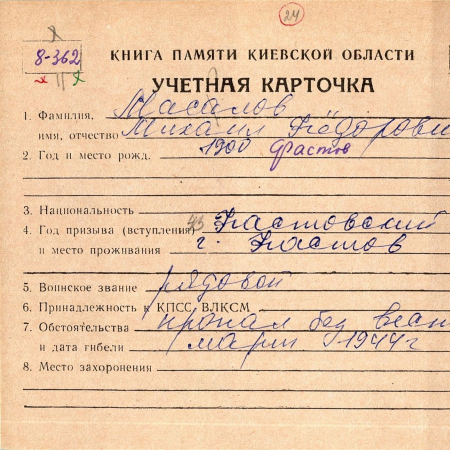 24
8-362
КНИГА ПАМЯТИ КИЕВСКОЙ ОБЛАСТИ
УЧЕТНАЯ КАРТОЧКА
1. Фамилия, Масалов
имя, отчество Михаил Фёдорови
2. Год и место рожд. 1900 Фастов
3. Национальность
4. Год призыва (вступления) 43 Фастовский
и место проживания г. Фастов
5. Воинское звание рядовой
6. Принадлежность к КПСС ВЛКСМ
7. Обстоятельства пропал без вест
и дата гибели март 1944 г
8. Место захоронения